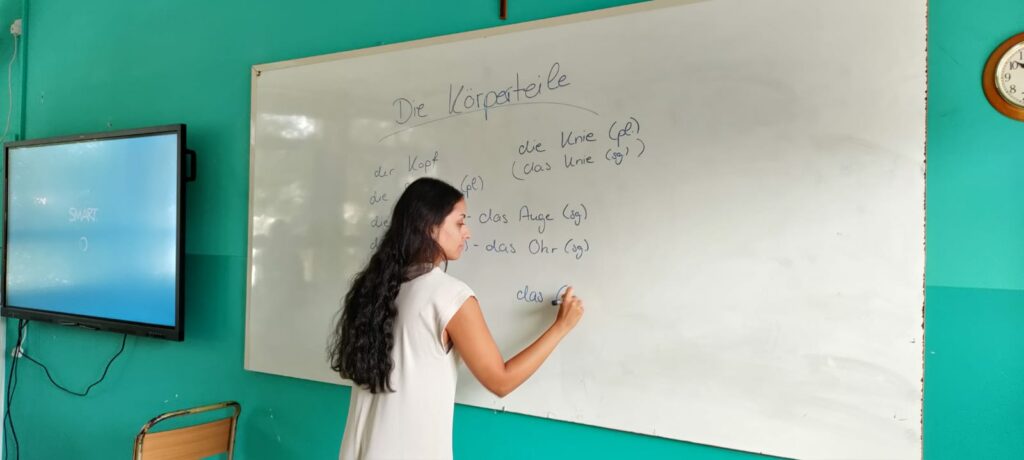 Die Körperteile
der Kopf
die (pl)
die - das Auge (sg)
) - das Ohr (sg)
das
die Knie (pl.)
(das Knie (sg))
SMART
10
9
8